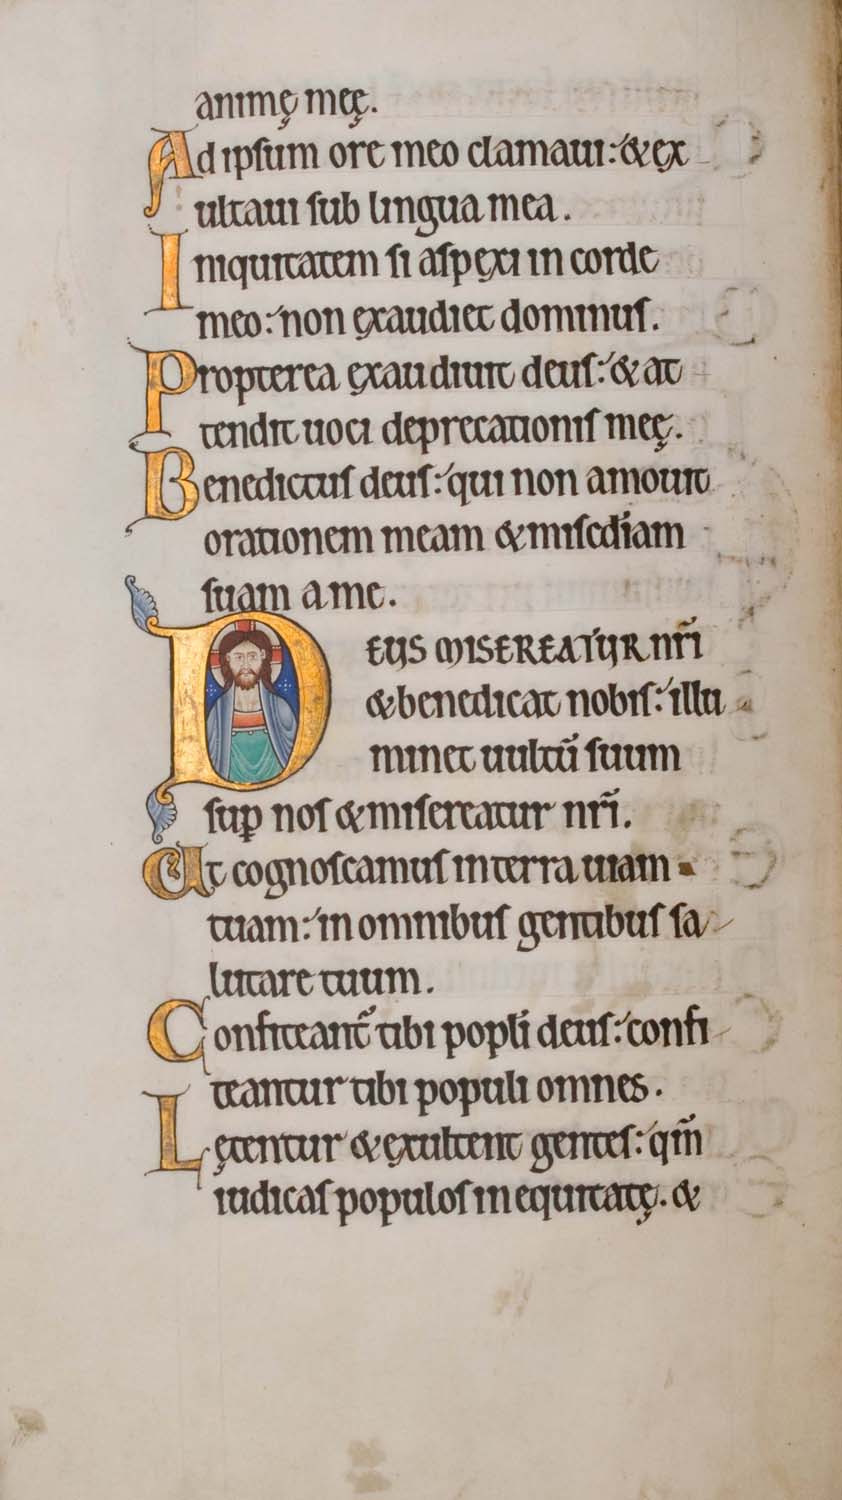 animę meę.
Ad ipſum ore meo clamaui: & ex
ultaui ſub lingua mea.
Iniquitatem ſi aſpexi in corde
meo: non exaudiet dominuſ.
Propterea exaudiuit deuſ: & at
tendit uoci deprecationiſ meę.
Benedictuſ deuſ: qui non amouit
orationem meam & miſcd̄iam
ſuam a me.
DEUS MISEREATUR nr̄i
& benedicat nobiſ: illu
minet uultū ſuum
ſuꝑ noſ & miſereatur nr̄i.
Ut cognoſcamuſ in terra uiam
tuam: in omnibuſ gentibuſ ſa
lutare tuum.
Confiteant᷑ tibi popl̄i deuſ: confi
teantur tibi populi omnes.
Lętentur & exultent genteſ: qm̄
iudicaſ populoſ in equitatę. &